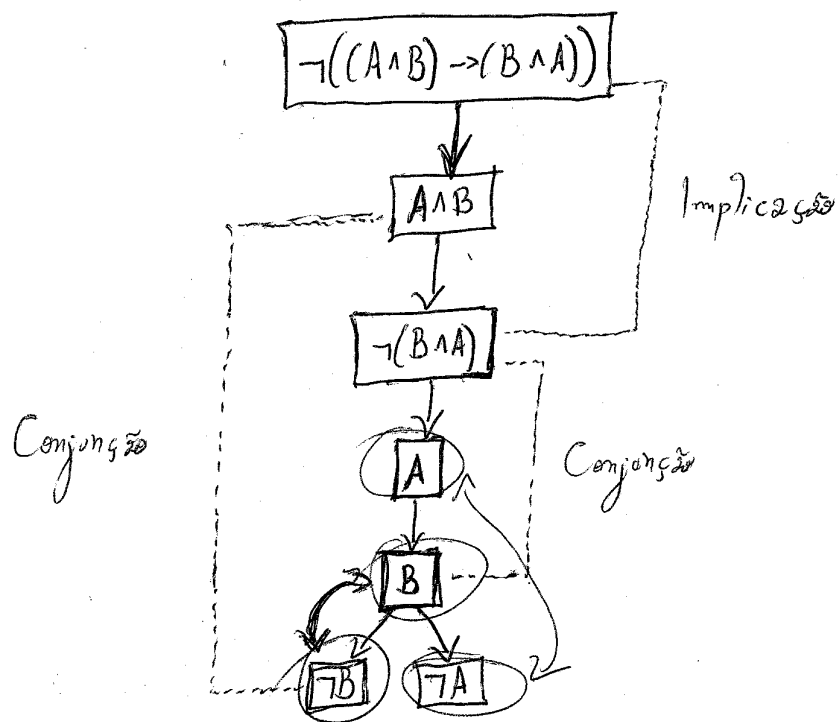 ¬((A∧B)→(B∧A))
A∧B
Implicação
¬(B∧A)
Conjunção
A
Conjunção
B
¬B
¬A